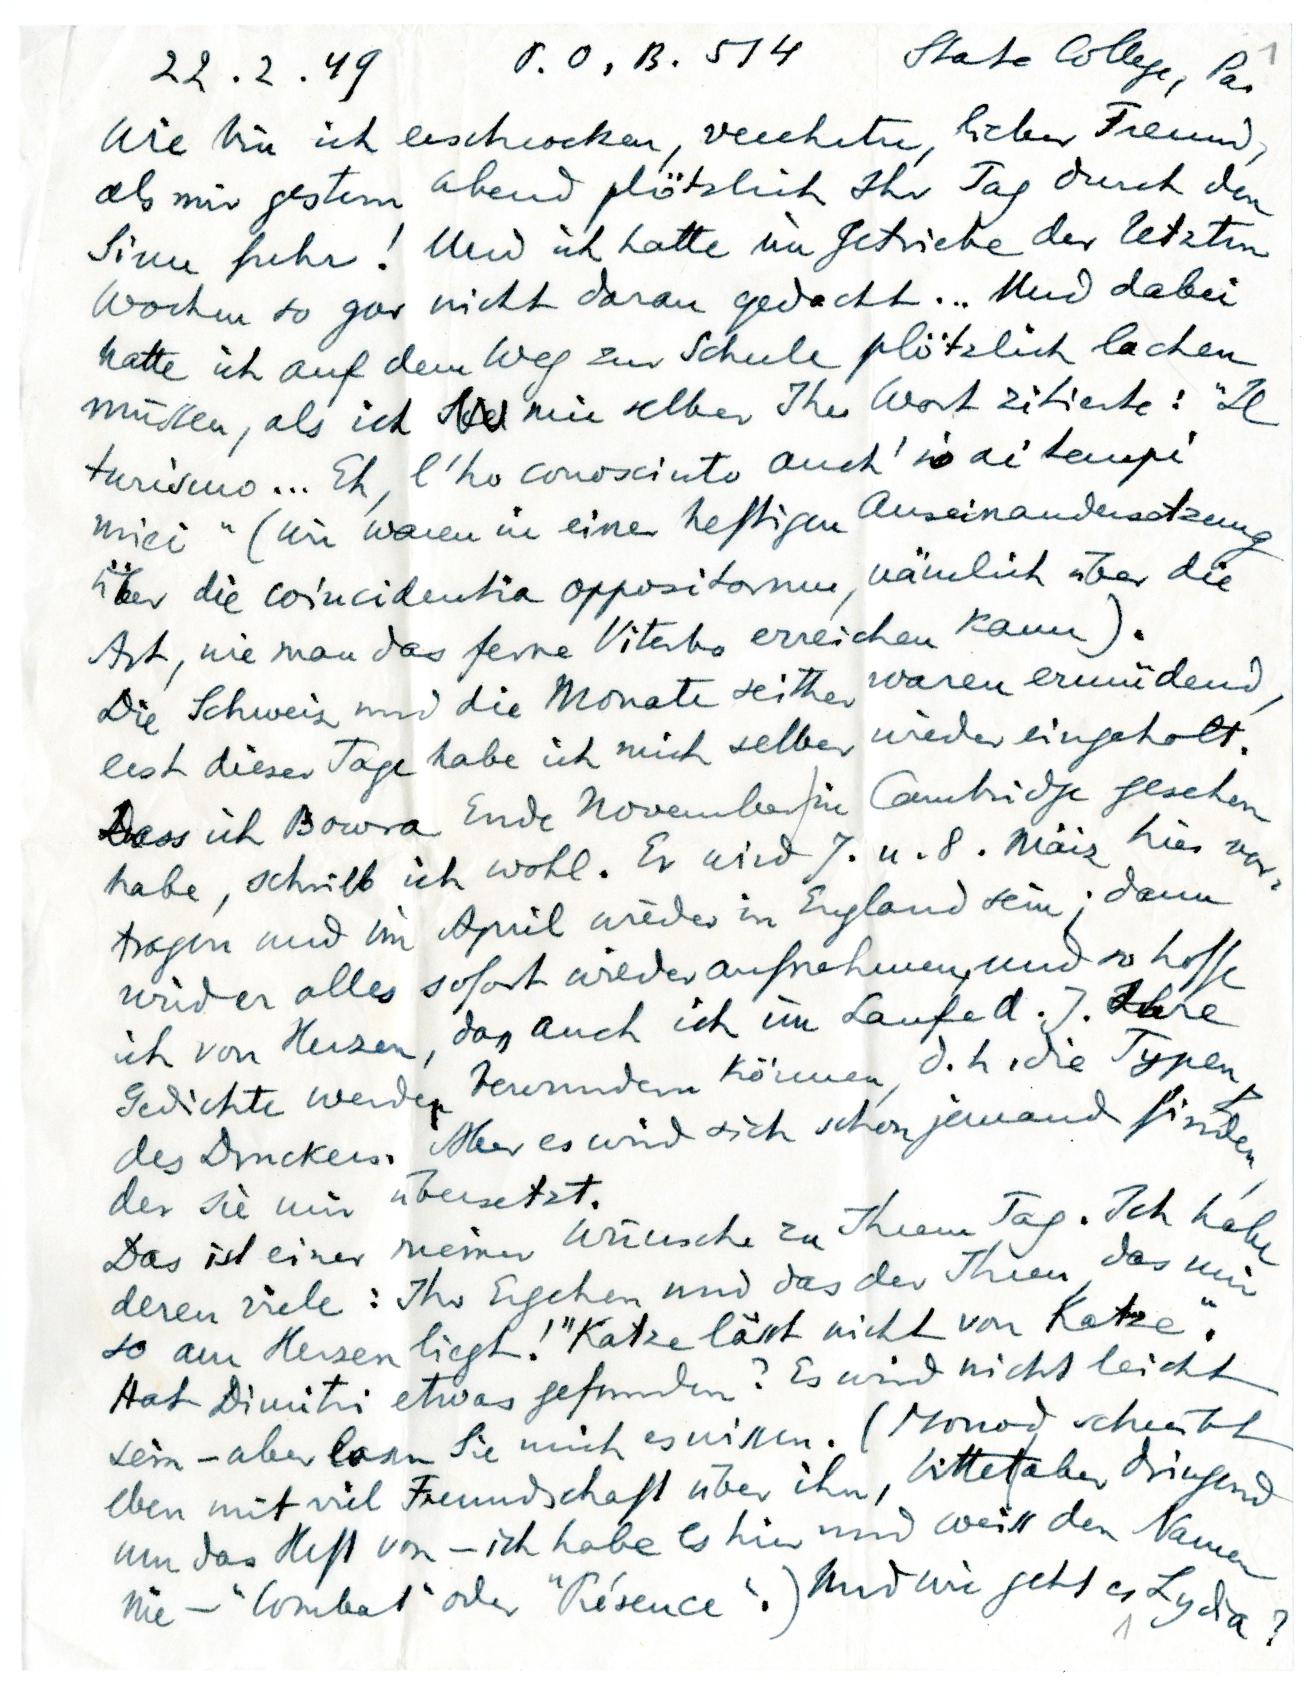 22.2.49 P.O.B. 514 State College, Pa. 1
Wie bin ich erschrocken, verehrter, lieber Freund,
als mir gestern Abend plötzlich Ihr Tag durch den
Sinn fuhr! Und ich hatte im Getriebe der letzten
Wochen so gar nicht daran gedacht... Und dabei
hatte ich auf dem Weg zur Schule plötzlich lachen
müssen, als ich mir selber Ihr Wort zitierte: "Il
turismo... Eh, l'ho conosciuto anch' io ai tempi
miei" (wir waren in einer heftigen Auseinandersetzung
über die coincidentia oppositorum, nämlich über die
Art, wie man das ferne Viterbo erreichen kann).
Die Schweiz und die Monate seither waren ermüdend,
erst dieser Tage habe ich mich selber wieder eingeholt.
Dass ich Bowra Ende November in Cambridge gesehen
habe, schrieb ich wohl. Er wird 7. u. 8. März hier vor-
tragen und im April wieder in England sein; dann
wird er alles sofort wieder aufnehmen, und so hoffe
ich von Herzen, dass auch ich im Laufe d. J. Ihre
Gedichte werde bewundern können, d.h. die Typen
des Druckers. Aber es wird sich schon jemand finden,
der sie mir übersetzt.
Das ist einer meiner Wünsche zu Ihrem Tag. Ich habe
deren viele: Ihr Ergehen und das der Ihren, das mir
so am Herzen liegt! "Katze lässt nicht von Katze".
Hat Dimitri etwas gefunden? Es wird nicht leicht
sein – aber lassen Sie mich es wissen. (Monod schreibt
eben mit viel Freundschaft über ihn, bittet aber dringend
um das Heft von – ich habe es hier und weiss den Namen
nie – "Combat" oder "Présence".) Und wie geht es Lydia?
1